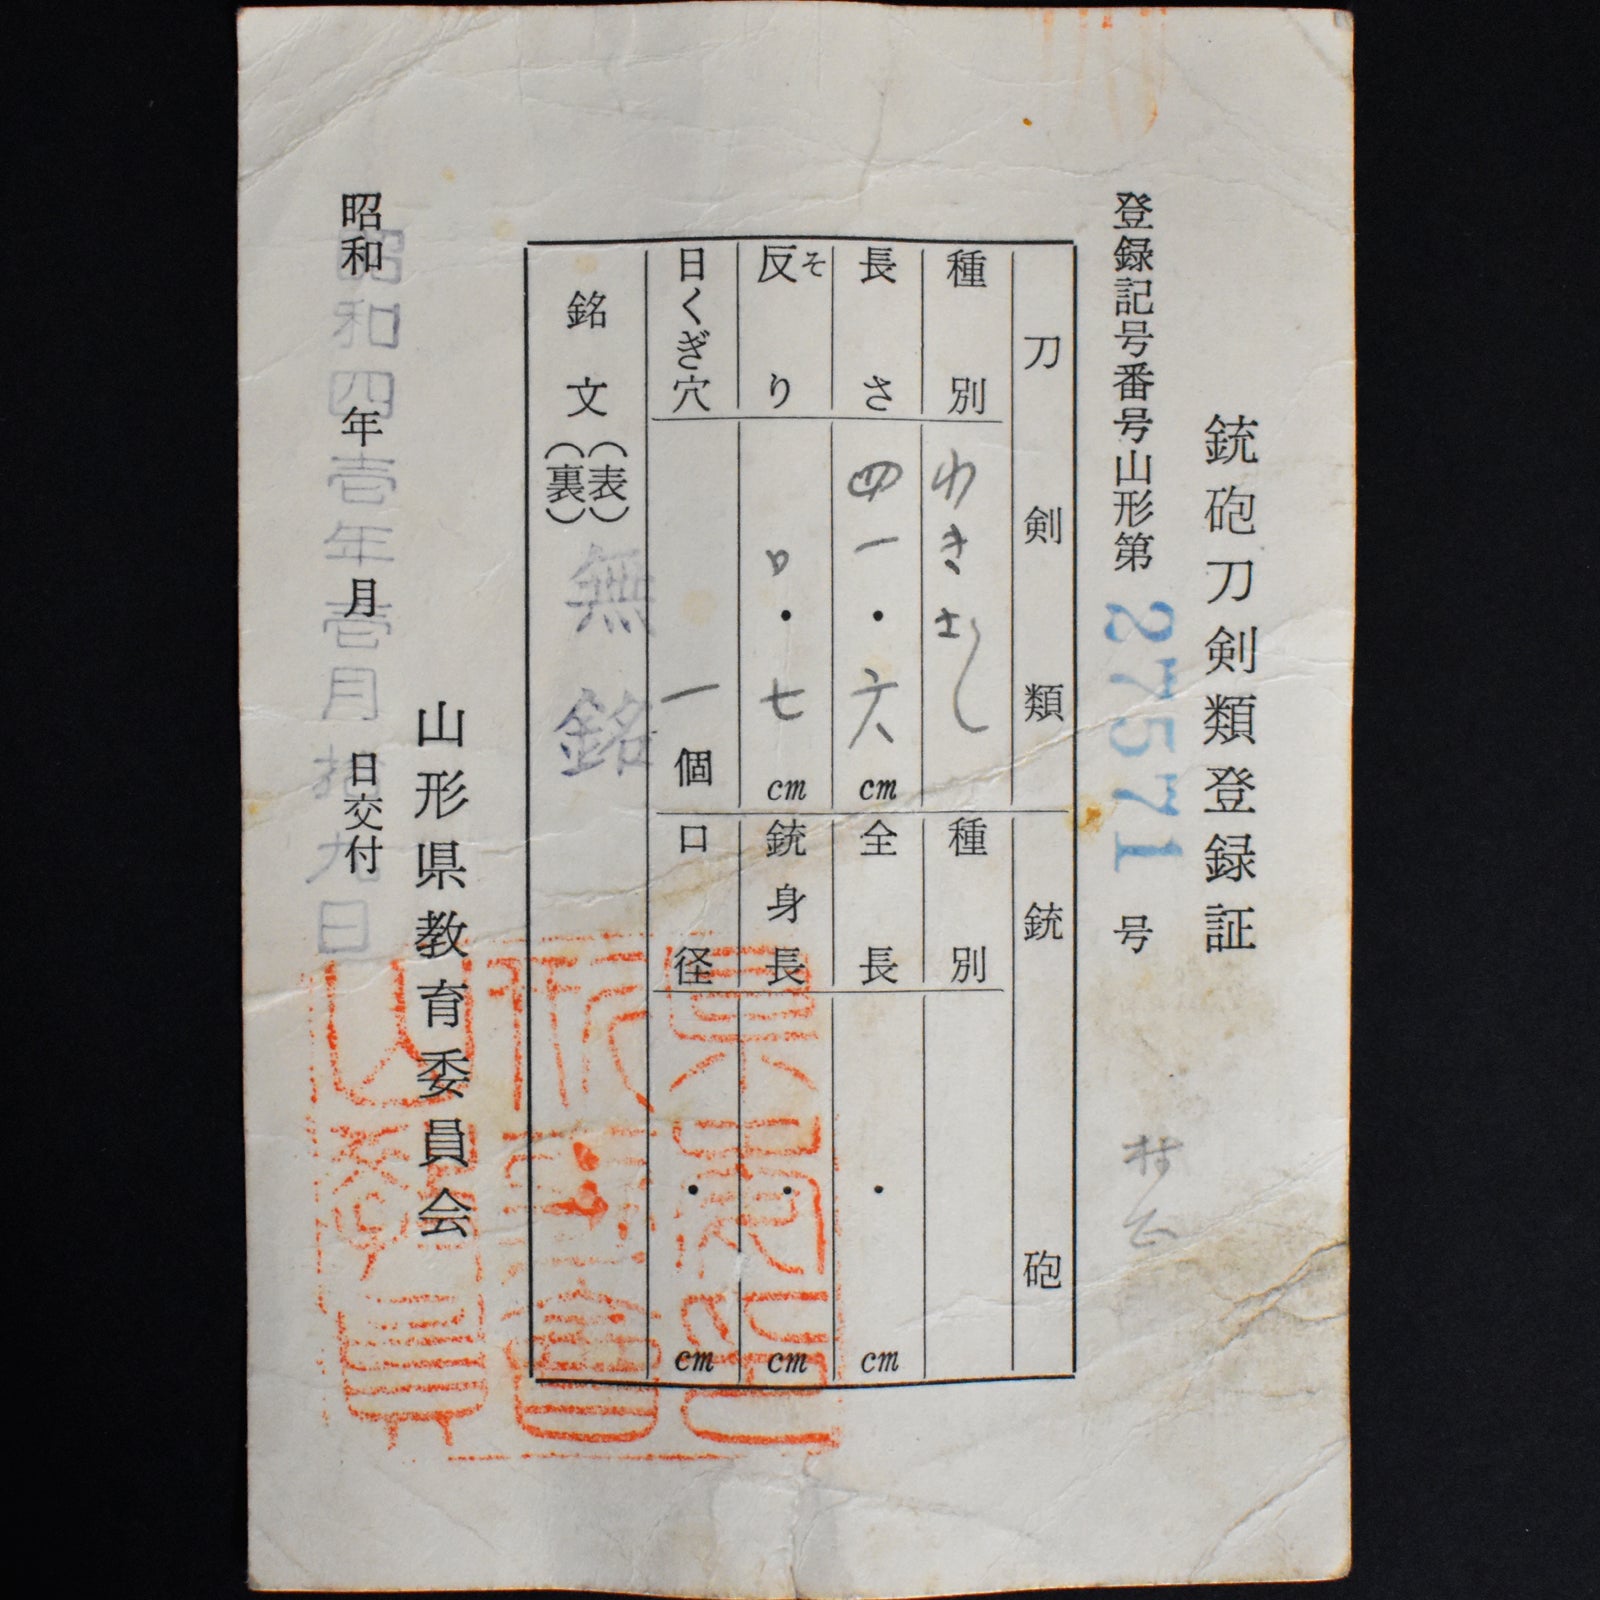 銃砲刀剣類登録証
登録記号番号山形第 27571 号
刀剣類
種別 わきざし
長さ 四一・六 cm
反り そ 〇・七 cm
目くぎ穴 一個
銃砲
種別
全長 ・ cm
銃身長 ・ cm
口径 ・ cm
銘文 (表) (裏) 無銘
山形県教育委員会
昭和 年 月 日交付
昭和四壱年壱月拾九日